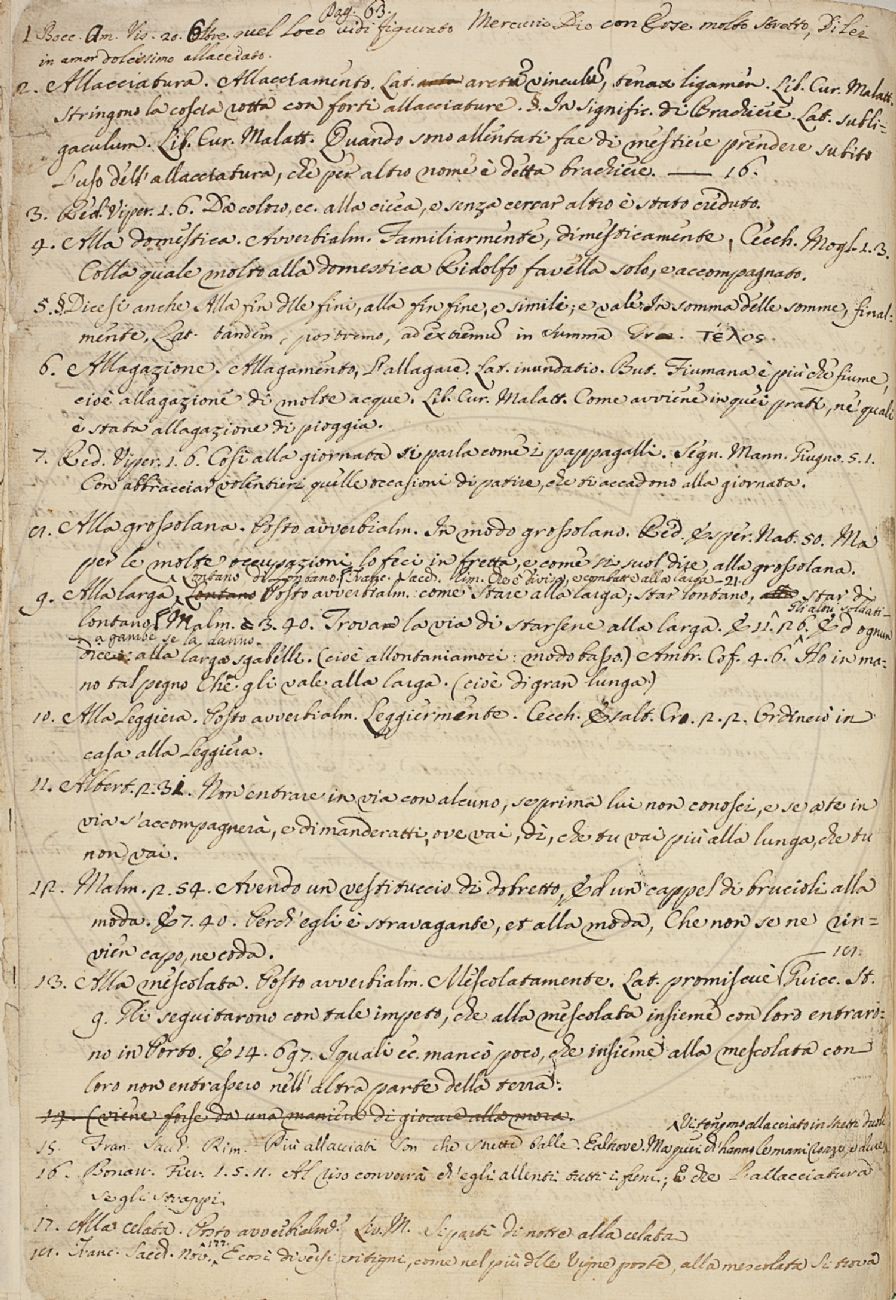 Pag. 63.
1 Bocc. Am. Vis. 20. Oltre quel Loco vidi figurato Mercurio Dio con Erse molto stretto, Di lei
in amor dolcissimo allacciato.
2. Allacciatura. Allacciamento. Lat. arctū vinculū, tenax ligamen. Lib. Cur. Malatt.
Stringono la coscia rotta con forti allacciature. §. In signific. di Brachiere. Lat. subli-
gaculum. Lib. Cur. Malatt. Quando sono allentati fae di mestiere prendere subito
l'uso dell'allacciatura, che per altro nome è detta brachiere. —— 16.
3. Red. Viper. 1. 6. Da coloro, ec. alla cieca, e senza cercar altro è stato creduto.
4. Alla domestica. Avverbialm. Familiarmente, dimesticamente, Cecch. Mogl. 1. 3.
Colla quale molto alla domestica Ridolfo favella solo, e accompagnato.
5. § Dicesi anche Alla fin dlle fini, alla fin fine, e simili; e vale In somma delle somme, final-
mente, Lat. tandem, postremo, ad extremū in summa Gr. τέλος.
6. Allagazione. Allagamento, l'allagare. Lat. inundatio. But. Fiumana è più che fiume
cioè allagazione di molte acque. Lib. Cur. Malatt. Come avviene in quei prati, ne' quali
è stata allagazione di pioggia.
7. Red. Viper. 1. 6. Così alla giornata si parla come i pappagalli. Segn. Mann. Giugno. 5. 1.
Con abbracciar volentieri quelle occasioni di patire, che ti accadono alla giornata.
Alla grossolana. Posto avverbialm. In modo grossolano. Red. Esper. Nat. 50. Ma
per le molte occupazioni lo feci in fretta, e come si suol dire alla grossolana.
Lontano di lontano. Franc. Sacch. Rim. Cioè divisi, e combatte alla larga 21.
9. Alla larga Lontano Posto avverbialm. come Stare alla larga; star lontano, star di
lontano. Malm. 3. 40. Trovar la via di starsene alla larga. E 11. 26. Ed ognun
Gli altri soldati
a gambe se la danno.
dice: alla larga sgabelli. (cioè allontaniamoci: modo basso) Ambr. Cof. 4. 6. Ho in ma-
no tal pegno Che gli vale alla larga. (cioè di gran lunga)
10. Alla Leggiera. Posto avverbialm. Leggiermente. Cecch. Esalt. Cro. 2. 2. Ordinerò in
casa alla Leggiera.
11. Albert. 2. 31. Non entrare in via con alcuno, se prima lui non conosci, e se a te in
via s'accompagnerà, e dimanderatti, ove vai, dì, che tu vai più alla lunga, che tu
non vai.
12. Malm. 2. 54. Avendo un vestituccio di dobretto, Ed un cappel di brucioli alla
moda. E 7. 40. Perch'egli è stravagante, et alla moda, Che non se ne rin-
vien capo, ne coda.
13. Alla mescolata. Posto avverbialm. Mescolatamente. Lat. promiscuè Guicc. St.
9. Gli seguitarono con tale impeto, che alla mescolata insieme con loro entraro-
no in Porto. E 14. 697. I quali ec. mancò poco, che insieme alla mescolata con
loro non entrassero nell'altra parte della terra.
14. (viene forse da una maniera di giocare alla mora.
Vi tengono allacciato in stretti
15. Fran. Sacch. Rim. Più allacciati Son che strette balle. Ealtrove. Ma puri ch'hanno le mani
16. Bonarr. Fier. 1. 5. 11. Al viso converrà ch'egli allenti tutti i freni; E che l'allacciatura
Se gli strappi.
17. Alla celata. Posto avverbialm. Liv. M. Si partì di notte alla celata
Franc. Sacch. Nov. 177. E così diversi vitigni, come nel più dlle Vigne poste, alla mescolata si trova